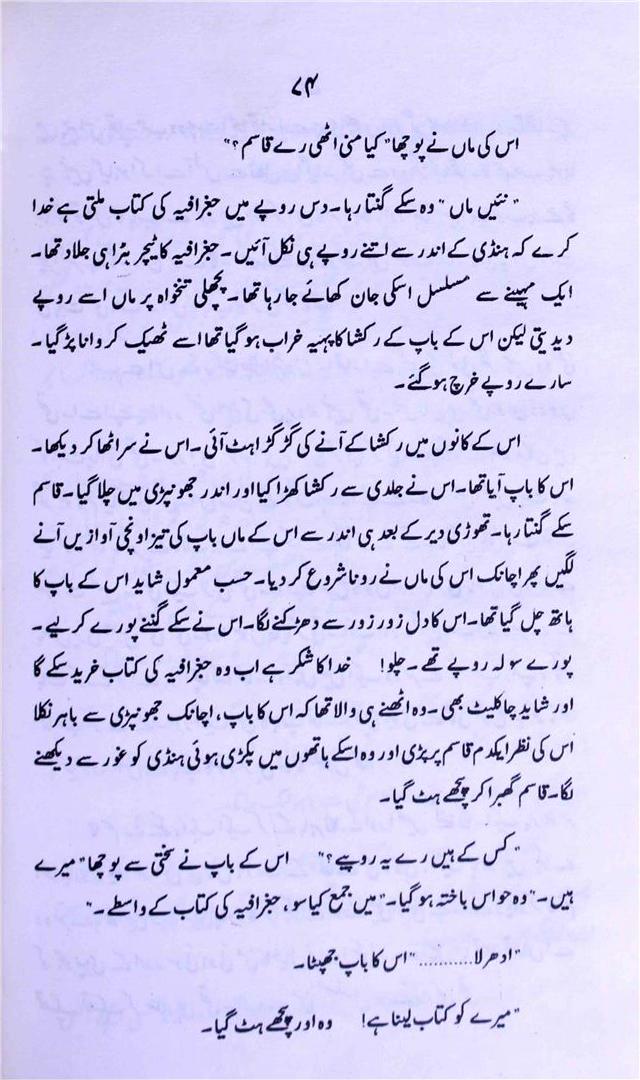 ۷۴
اس کی ماں نے پوچھا" کیا منی اٹھی رے قاسم؟"
"نئیں ماں" وہ سکے گنتا رہا۔ دس روپے میں جغرافیہ کی کتاب ملتی ہے خدا
کرے کہ ہنڈی کے اندر سے اتنے روپے ہی نکل آئیں۔ جغرافیہ کا ٹیچر بڑا ہی جلاد تھا۔
ایک مہینے سے مسلسل اسکی جان کھائے جا رہا تھا۔ پچھلی تنخواہ پر ماں اسے روپے
دیدیتی لیکن اس کے باپ کے رکشا کا پہیہ خراب ہو گیا تھا اسے ٹھیک کروانا پڑ گیا۔
سارے روپے خرچ ہو گئے۔
اس کے کانوں میں رکشا کے آنے کی گڑگڑاہٹ آئی۔ اس نے سر اٹھا کر دیکھا۔
اس کا باپ آیا تھا۔ اس نے جلدی سے رکشا کھڑا کیا اور اندر جھونپڑی میں چلا گیا۔ قاسم
سکے گنتا رہا۔ تھوڑی دیر کے بعد ہی اندر سے اس کے ماں باپ کی تیز اونچی آوازیں آنے
لگیں پھر اچانک اس کی ماں نے رونا شروع کر دیا۔ حسب معمول شاید اس کے باپ کا
ہاتھ چل گیا تھا۔ اس کا دل زور زور سے دھڑکنے لگا۔ اس نے سکے گننے پورے کر لیے۔
پورے سولہ روپے تھے۔ چلو! خدا کا شکر ہے اب وہ جغرافیہ کی کتاب خرید سکے گا
اور شاید چاکلیٹ بھی۔ وہ اٹھنے ہی والا تھا کہ اس کا باپ، اچانک جھونپڑی سے باہر نکلا
اس کی نظر ایکدم قاسم پر پڑی اور وہ اسکے ہاتھوں میں پکڑی ہوئی ہنڈی کو غور سے دیکھنے
لگا۔ قاسم گھبرا کر پیچھے ہٹ گیا۔
"کس کے ہیں رے یہ روپیے؟" اس کے باپ نے سختی سے پوچھا" میرے
ہیں۔" وہ حواس باختہ ہو گیا۔ "میں جمع کیا سو، جغرافیہ کی کتاب کے واسطے۔"
"ادھر لا.........." اس کا باپ جھپٹا۔
"میرے کو کتاب لینا ہے! وہ اور پیچھے ہٹ گیا۔